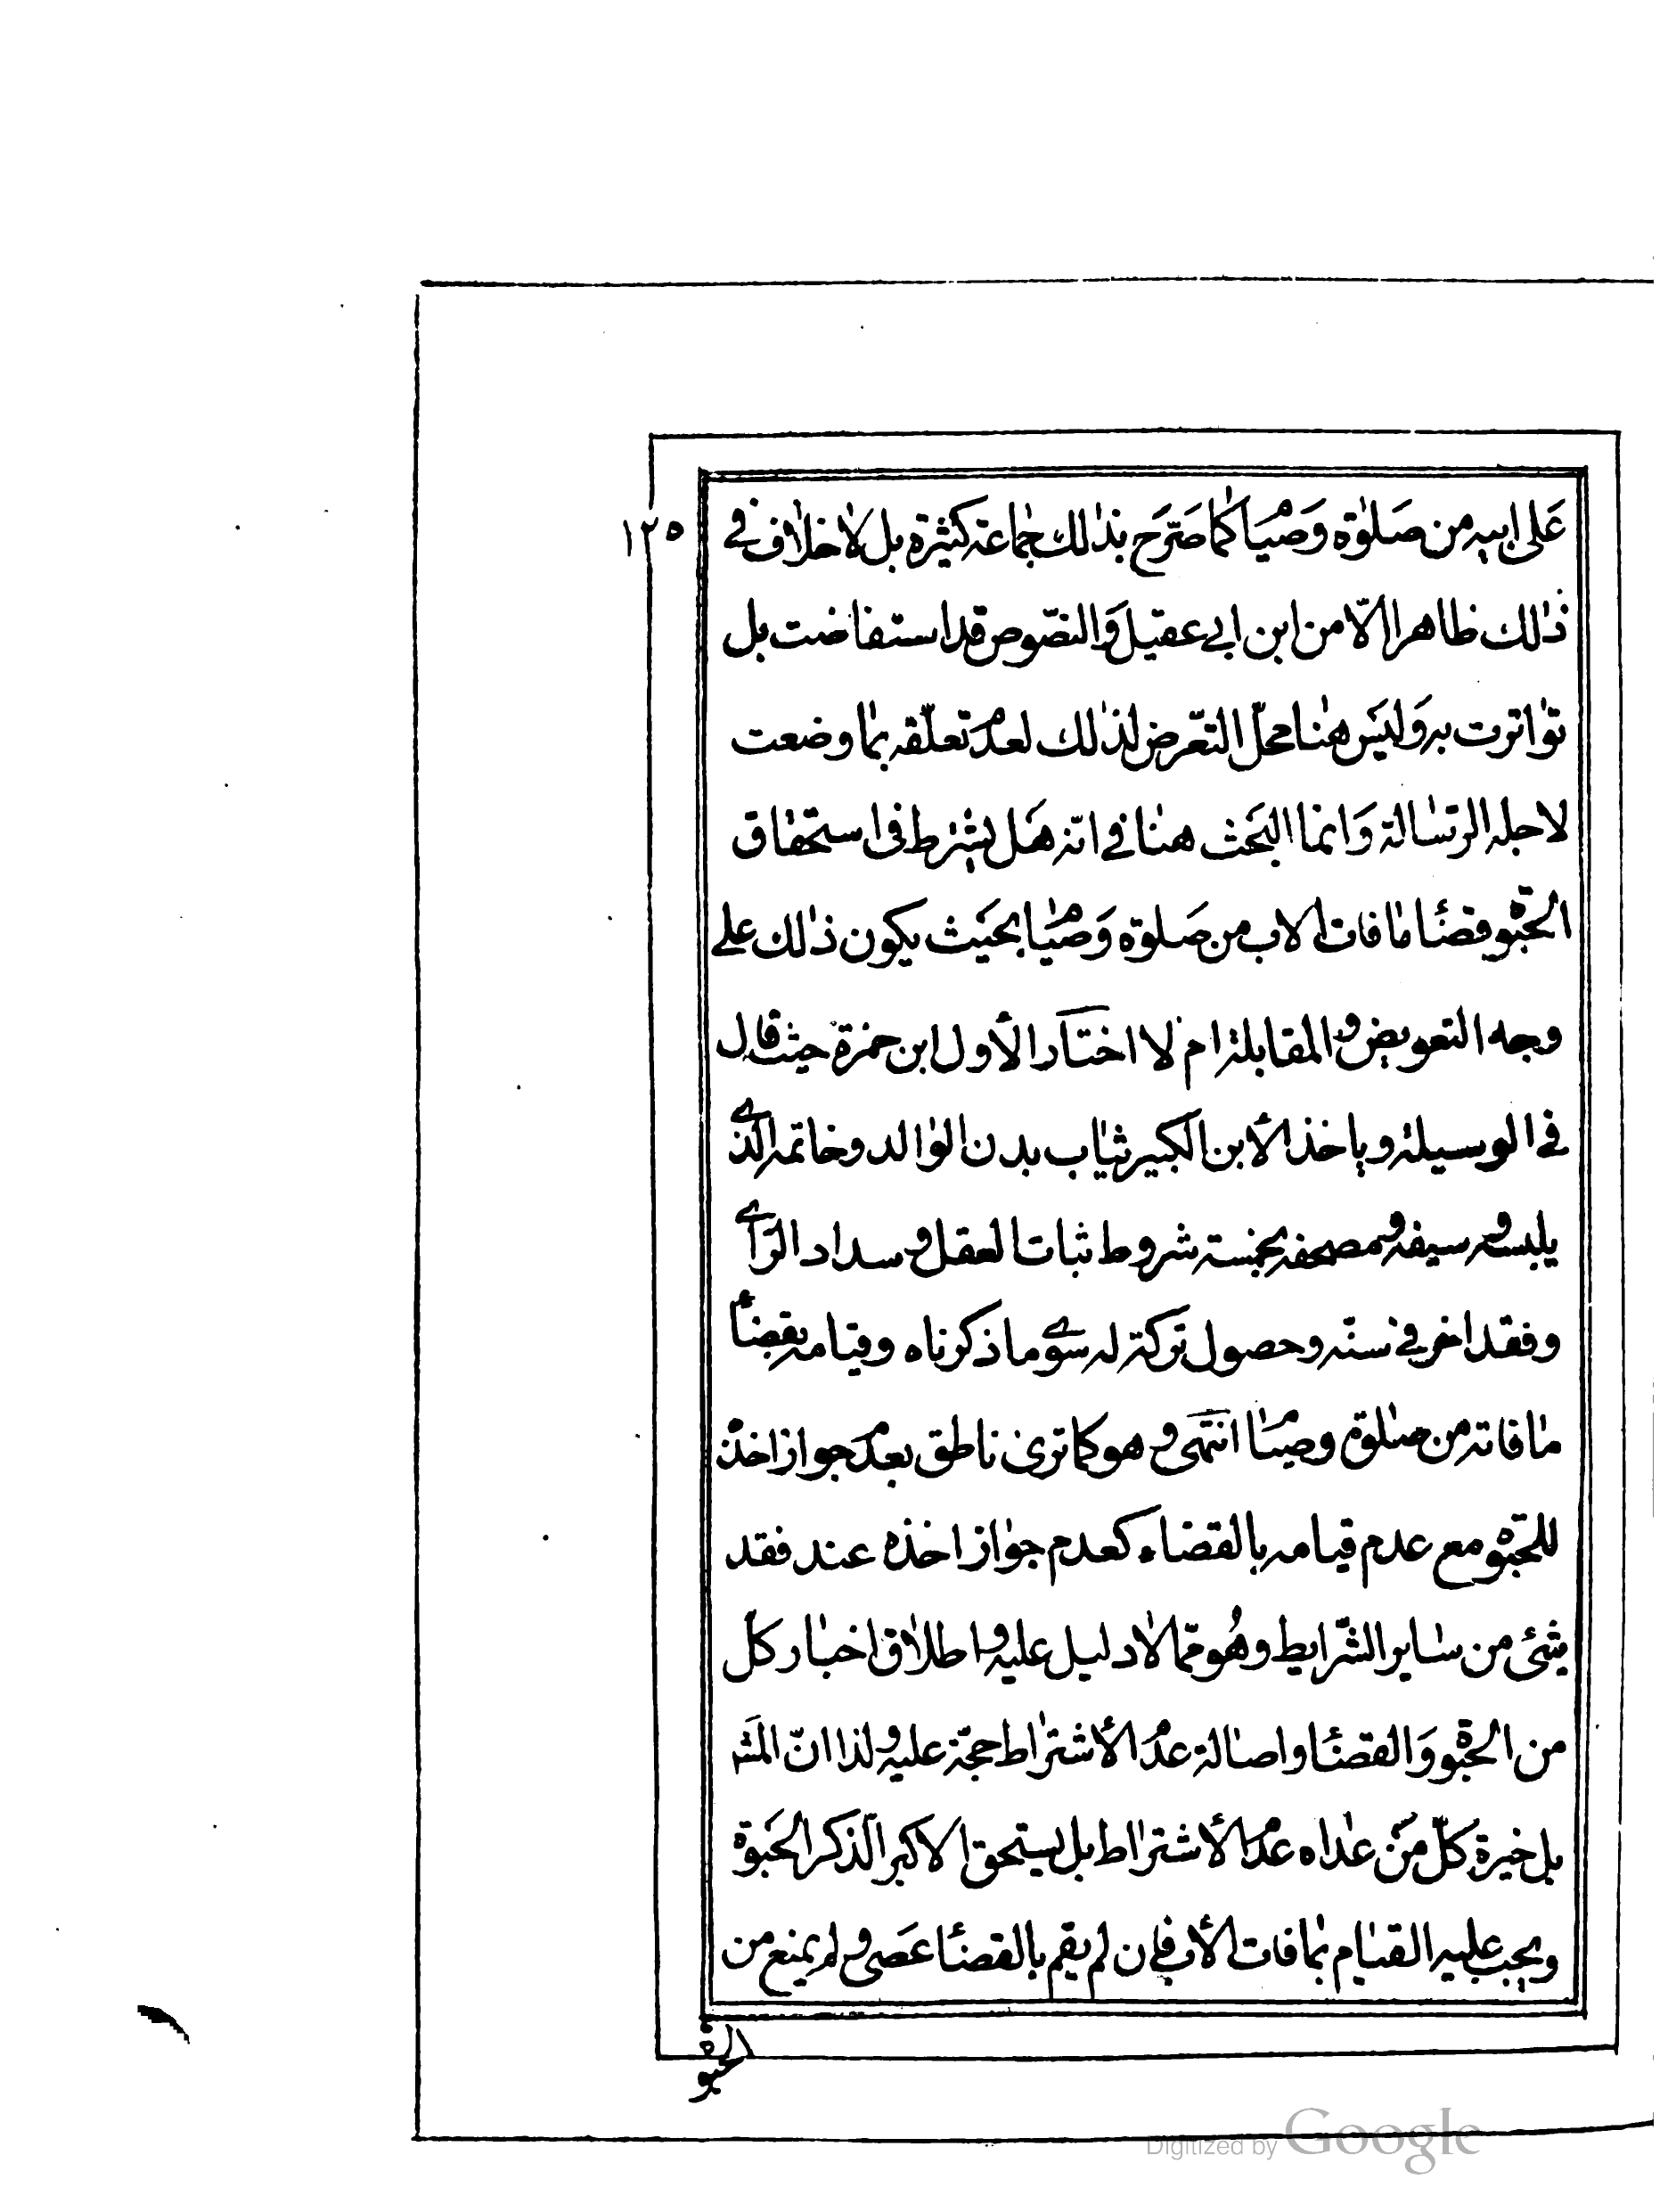 ١٢٥
على ابيه من صلوٰة وصيام كما صرّح بذٰلك جماعة كثيرة بل لا خلاف في
ذٰلك ظاهرا الّا من ابن ابي عقيل والنصّوص قد استفاضت بل
تواترت به وليس هٰنا محلّ التعّرض لذٰلك لعدم تعلّقه بما وضعت
لاجله الرّسالة وانما البحث هنا في انّه هل يشترط في استحقاق
الحبوة قضاء ما فات الاب من صلوة وصيام بحيث يكون ذٰلك على
وجه التعويض والمقابلة ام لا اختار الأول ابن حمزة حيث قال
في الوسيلة وياخذ الأبن الكبير ثياب بدن الوالد وخاتمه الذي
يلبسه وسيفه ومصحفه بخمسة شروط ثبات العقل وسداد الرّاي
وفقد اخر في سنّه وحصول تركة له سوى ما ذكرناه وقيامه بقضاء
ما فاته من صلوة وصيام انتهى وهو كما ترى ناطق بعدم جواز اخذه
للحبوة مع عدم قيامه بالقضاء كعدم جواز اخذه عند فقد
شئ من ساير الشّرايط وهُو ممّا لا دليل عليه واطلاق اخبار كل
من الحبوة والقضاء واصالة عدم الأشتراط حجّة عليه ولذا انّ المشه
بل خيرة كلّ من عداه عدم الأشتراط بل يستحق الاكبر الّذكر الحبوة
ويجب عليه القيام بما فات الأب فان لم يقم بالقضاء عصى ولم يمنع من
الحبوة
Digitized by Google